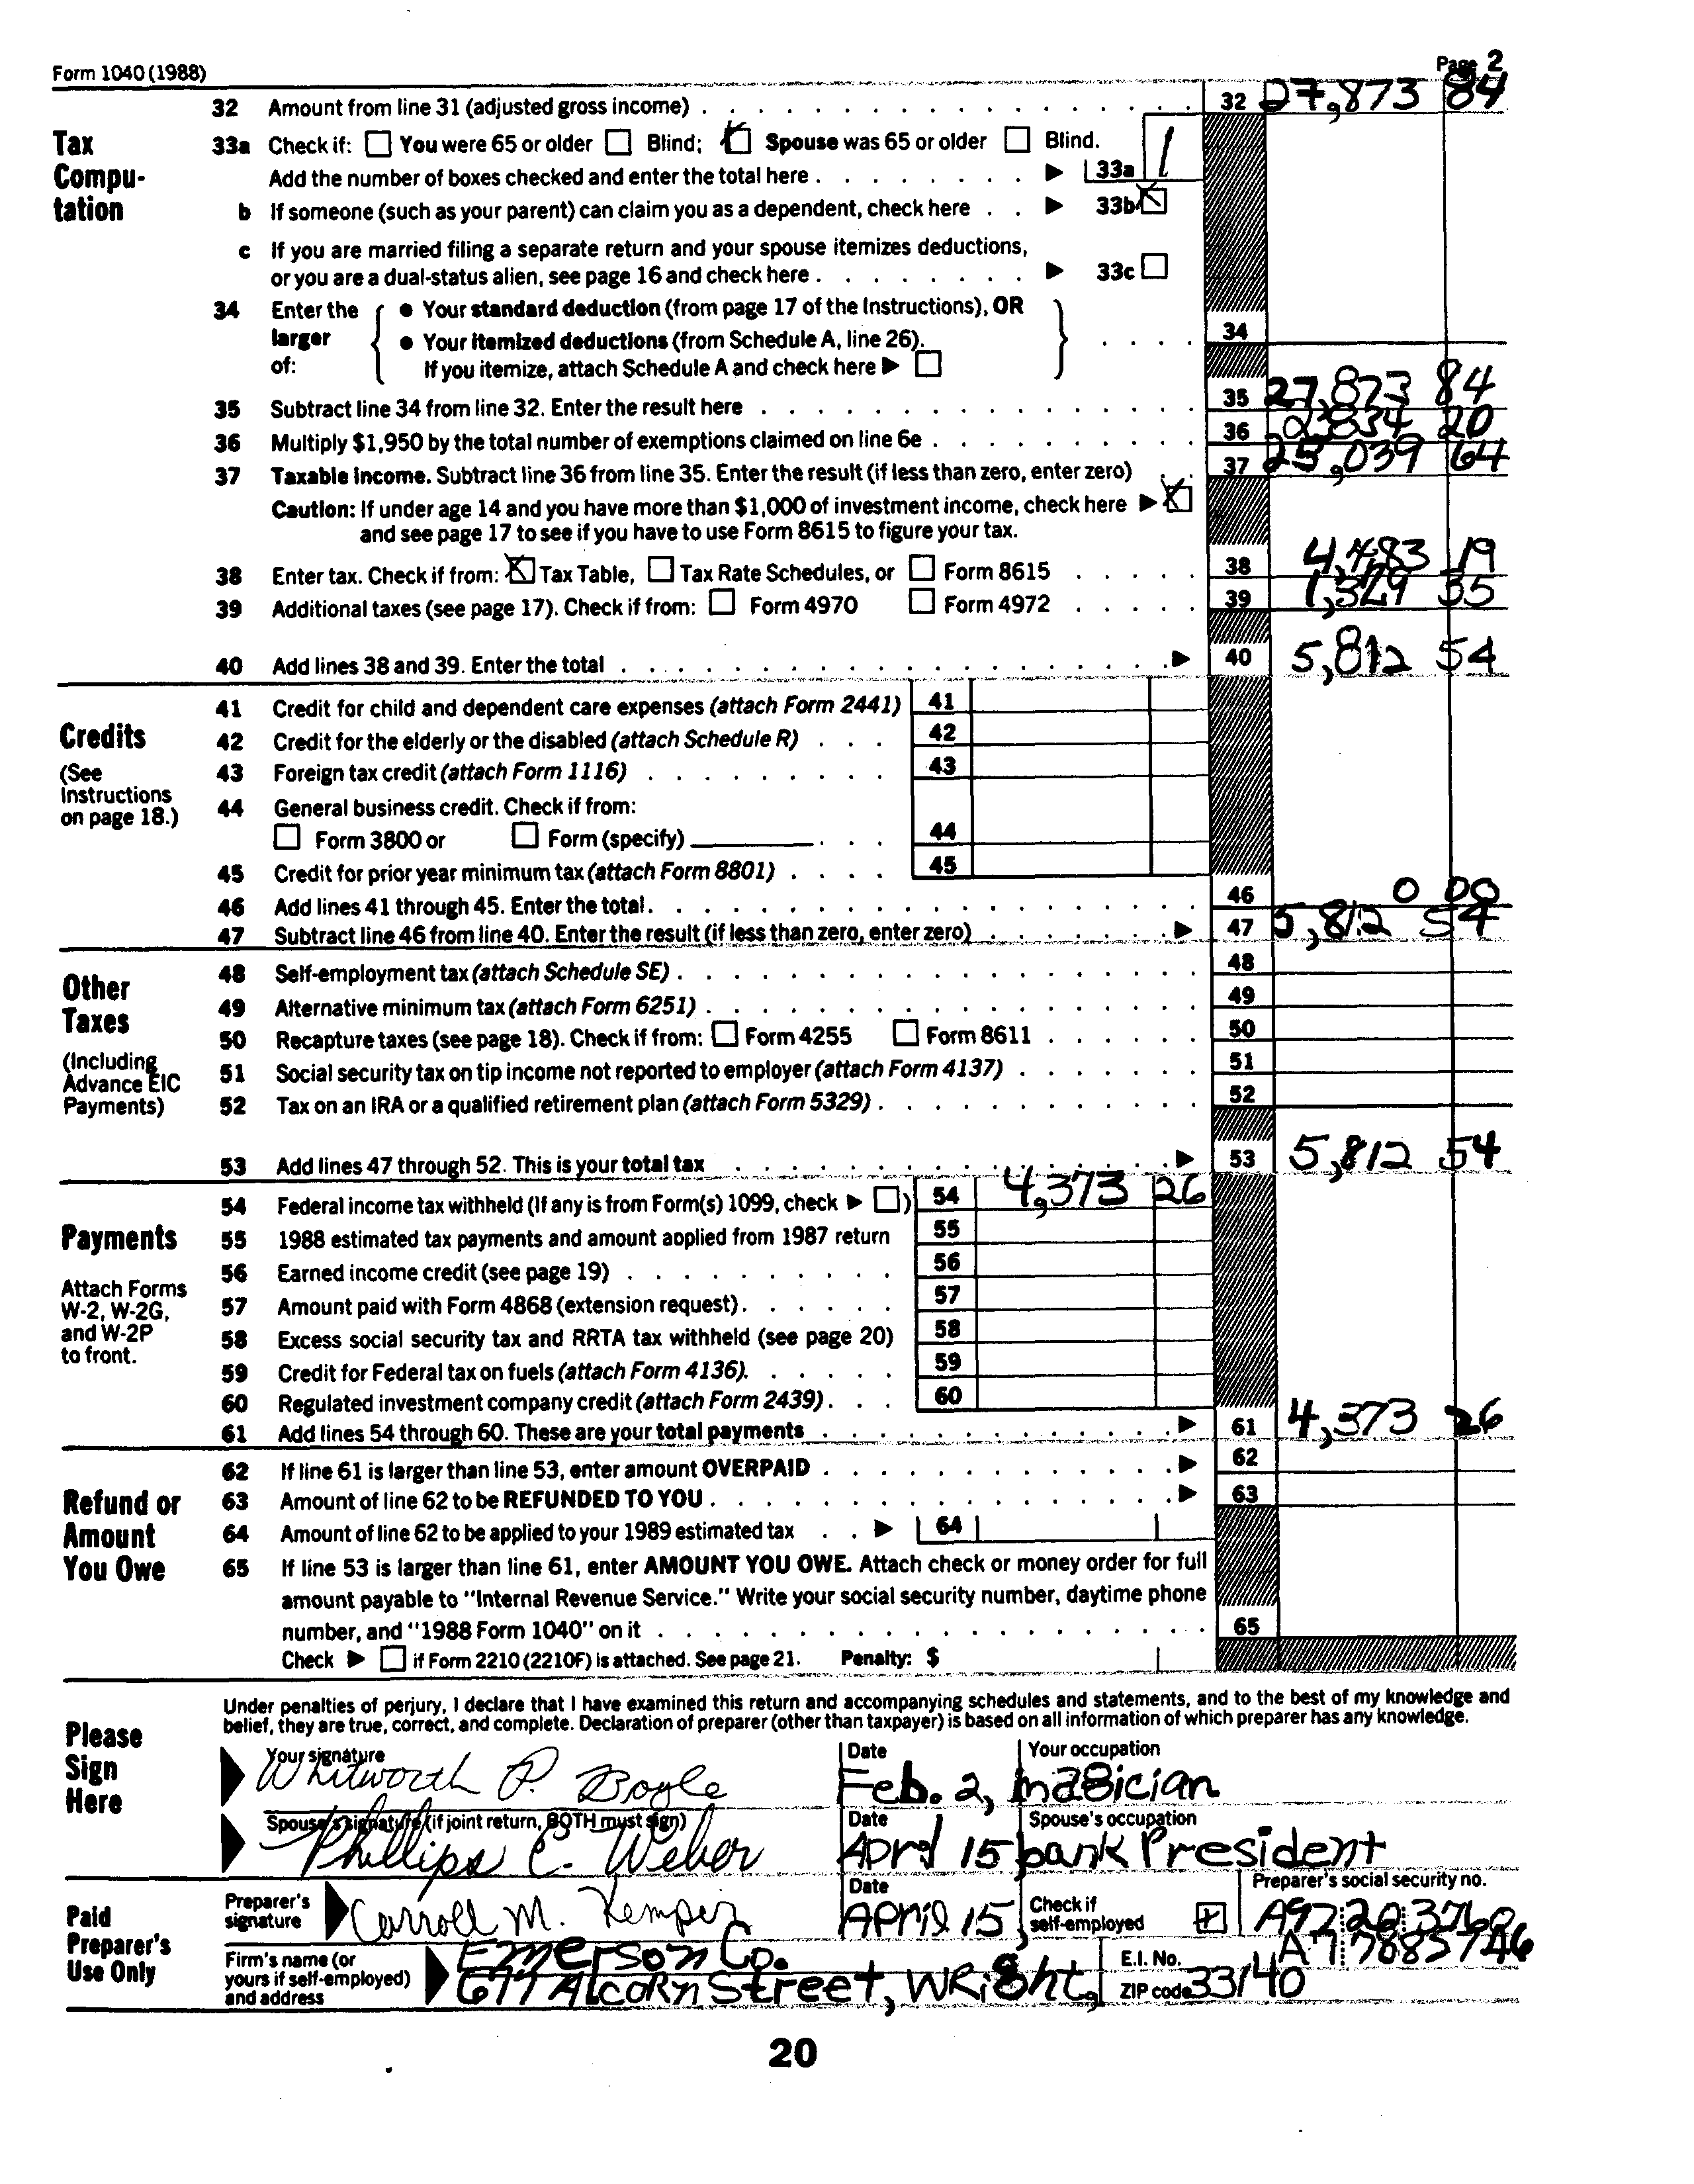 Form 1040 (1988) Page 2
32 Amount from line 31 (adjusted gross income) 32 27,873 84
Tax Compu-tation
33a Check if: You were 65 or older Blind; Spouse was 65 or older Blind.
Add the number of boxes checked and enter the total here 33a 1
b If someone (such as your parent) can claim you as a dependent, check here 33b
c If you are married filing a separate return and your spouse itemizes deductions,
or you are a dual-status alien, see page 16 and check here 33c
34 Enter the larger of:
• Your standard deduction (from page 17 of the Instructions), OR
• Your itemized deductions (from Schedule A, line 26).
If you itemize, attach Schedule A and check here
34
35 Subtract line 34 from line 32. Enter the result here 35 27,873 84
36 Multiply $1,950 by the total number of exemptions claimed on line 6e 36 2,834 20
37 Taxable income. Subtract line 36 from line 35. Enter the result (if less than zero, enter zero) 37 25,039 64
Caution: If under age 14 and you have more than $1,000 of investment income, check here
and see page 17 to see if you have to use Form 8615 to figure your tax.
38 Enter tax. Check if from: Tax Table, Tax Rate Schedules, or Form 8615 38 4,483 19
39 Additional taxes (see page 17). Check if from: Form 4970 Form 4972 39 1,329 35
40 Add lines 38 and 39. Enter the total 40 5,812 54
Credits
(See Instructions on page 18.)
41 Credit for child and dependent care expenses (attach Form 2441) 41
42 Credit for the elderly or the disabled (attach Schedule R) 42
43 Foreign tax credit (attach Form 1116) 43
44 General business credit. Check if from:
Form 3800 or Form (specify) 44
45 Credit for prior year minimum tax (attach Form 8801) 45
46 Add lines 41 through 45. Enter the total. 46 0 00
47 Subtract line 46 from line 40. Enter the result (if less than zero, enter zero) 47 5,812 54
Other Taxes
(Including Advance EIC Payments)
48 Self-employment tax (attach Schedule SE) 48
49 Alternative minimum tax (attach Form 6251) 49
50 Recapture taxes (see page 18). Check if from: Form 4255 Form 8611 50
51 Social security tax on tip income not reported to employer (attach Form 4137) 51
52 Tax on an IRA or a qualified retirement plan (attach Form 5329) 52
53 Add lines 47 through 52. This is your total tax 53 5,812 54
Payments
Attach Forms W-2, W-2G, and W-2P to front.
54 Federal income tax withheld (If any is from Form(s) 1099, check ) 54 4,373 26
55 1988 estimated tax payments and amount applied from 1987 return 55
56 Earned income credit (see page 19) 56
57 Amount paid with Form 4868 (extension request) 57
58 Excess social security tax and RRTA tax withheld (see page 20) 58
59 Credit for Federal tax on fuels (attach Form 4136). 59
60 Regulated investment company credit (attach Form 2439) 60
61 Add lines 54 through 60. These are your total payments 61 4,373 26
Refund or Amount You Owe
62 If line 61 is larger than line 53, enter amount OVERPAID 62
63 Amount of line 62 to be REFUNDED TO YOU 63
64 Amount of line 62 to be applied to your 1989 estimated tax 64
65 If line 53 is larger than line 61, enter AMOUNT YOU OWE. Attach check or money order for full
amount payable to "Internal Revenue Service." Write your social security number, daytime phone
number, and "1988 Form 1040" on it 65
Check if Form 2210 (2210F) is attached. See page 21. Penalty: $
Please Sign Here
Under penalties of perjury, I declare that I have examined this return and accompanying schedules and statements, and to the best of my knowledge and
belief, they are true, correct, and complete. Declaration of preparer (other than taxpayer) is based on all information of which preparer has any knowledge.
Your signature Date Your occupation
Whitworth P. Boyle Feb. 2, magician
Spouse's signature (if joint return, BOTH must sign) Date Spouse's occupation
Phillips C. Weber April 15 bank President
Paid Preparer's Use Only
Preparer's signature Carroll M. Kemper Date April 15, Check if self-employed Preparer's social security no. A97 20 3760
Firm's name (or yours if self-employed) and address Emerson Co. E.I. No. A7 7885746
677 Alcorn Street, Wright, ZIP code 33140
20